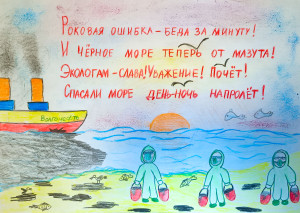 Роковая ошибка – беда за минуту!
И чёрное море теперь от мазута!
Экологам – слава! Уважение! Почёт!
Спасали море день-ночь напролёт!
Волгонефть